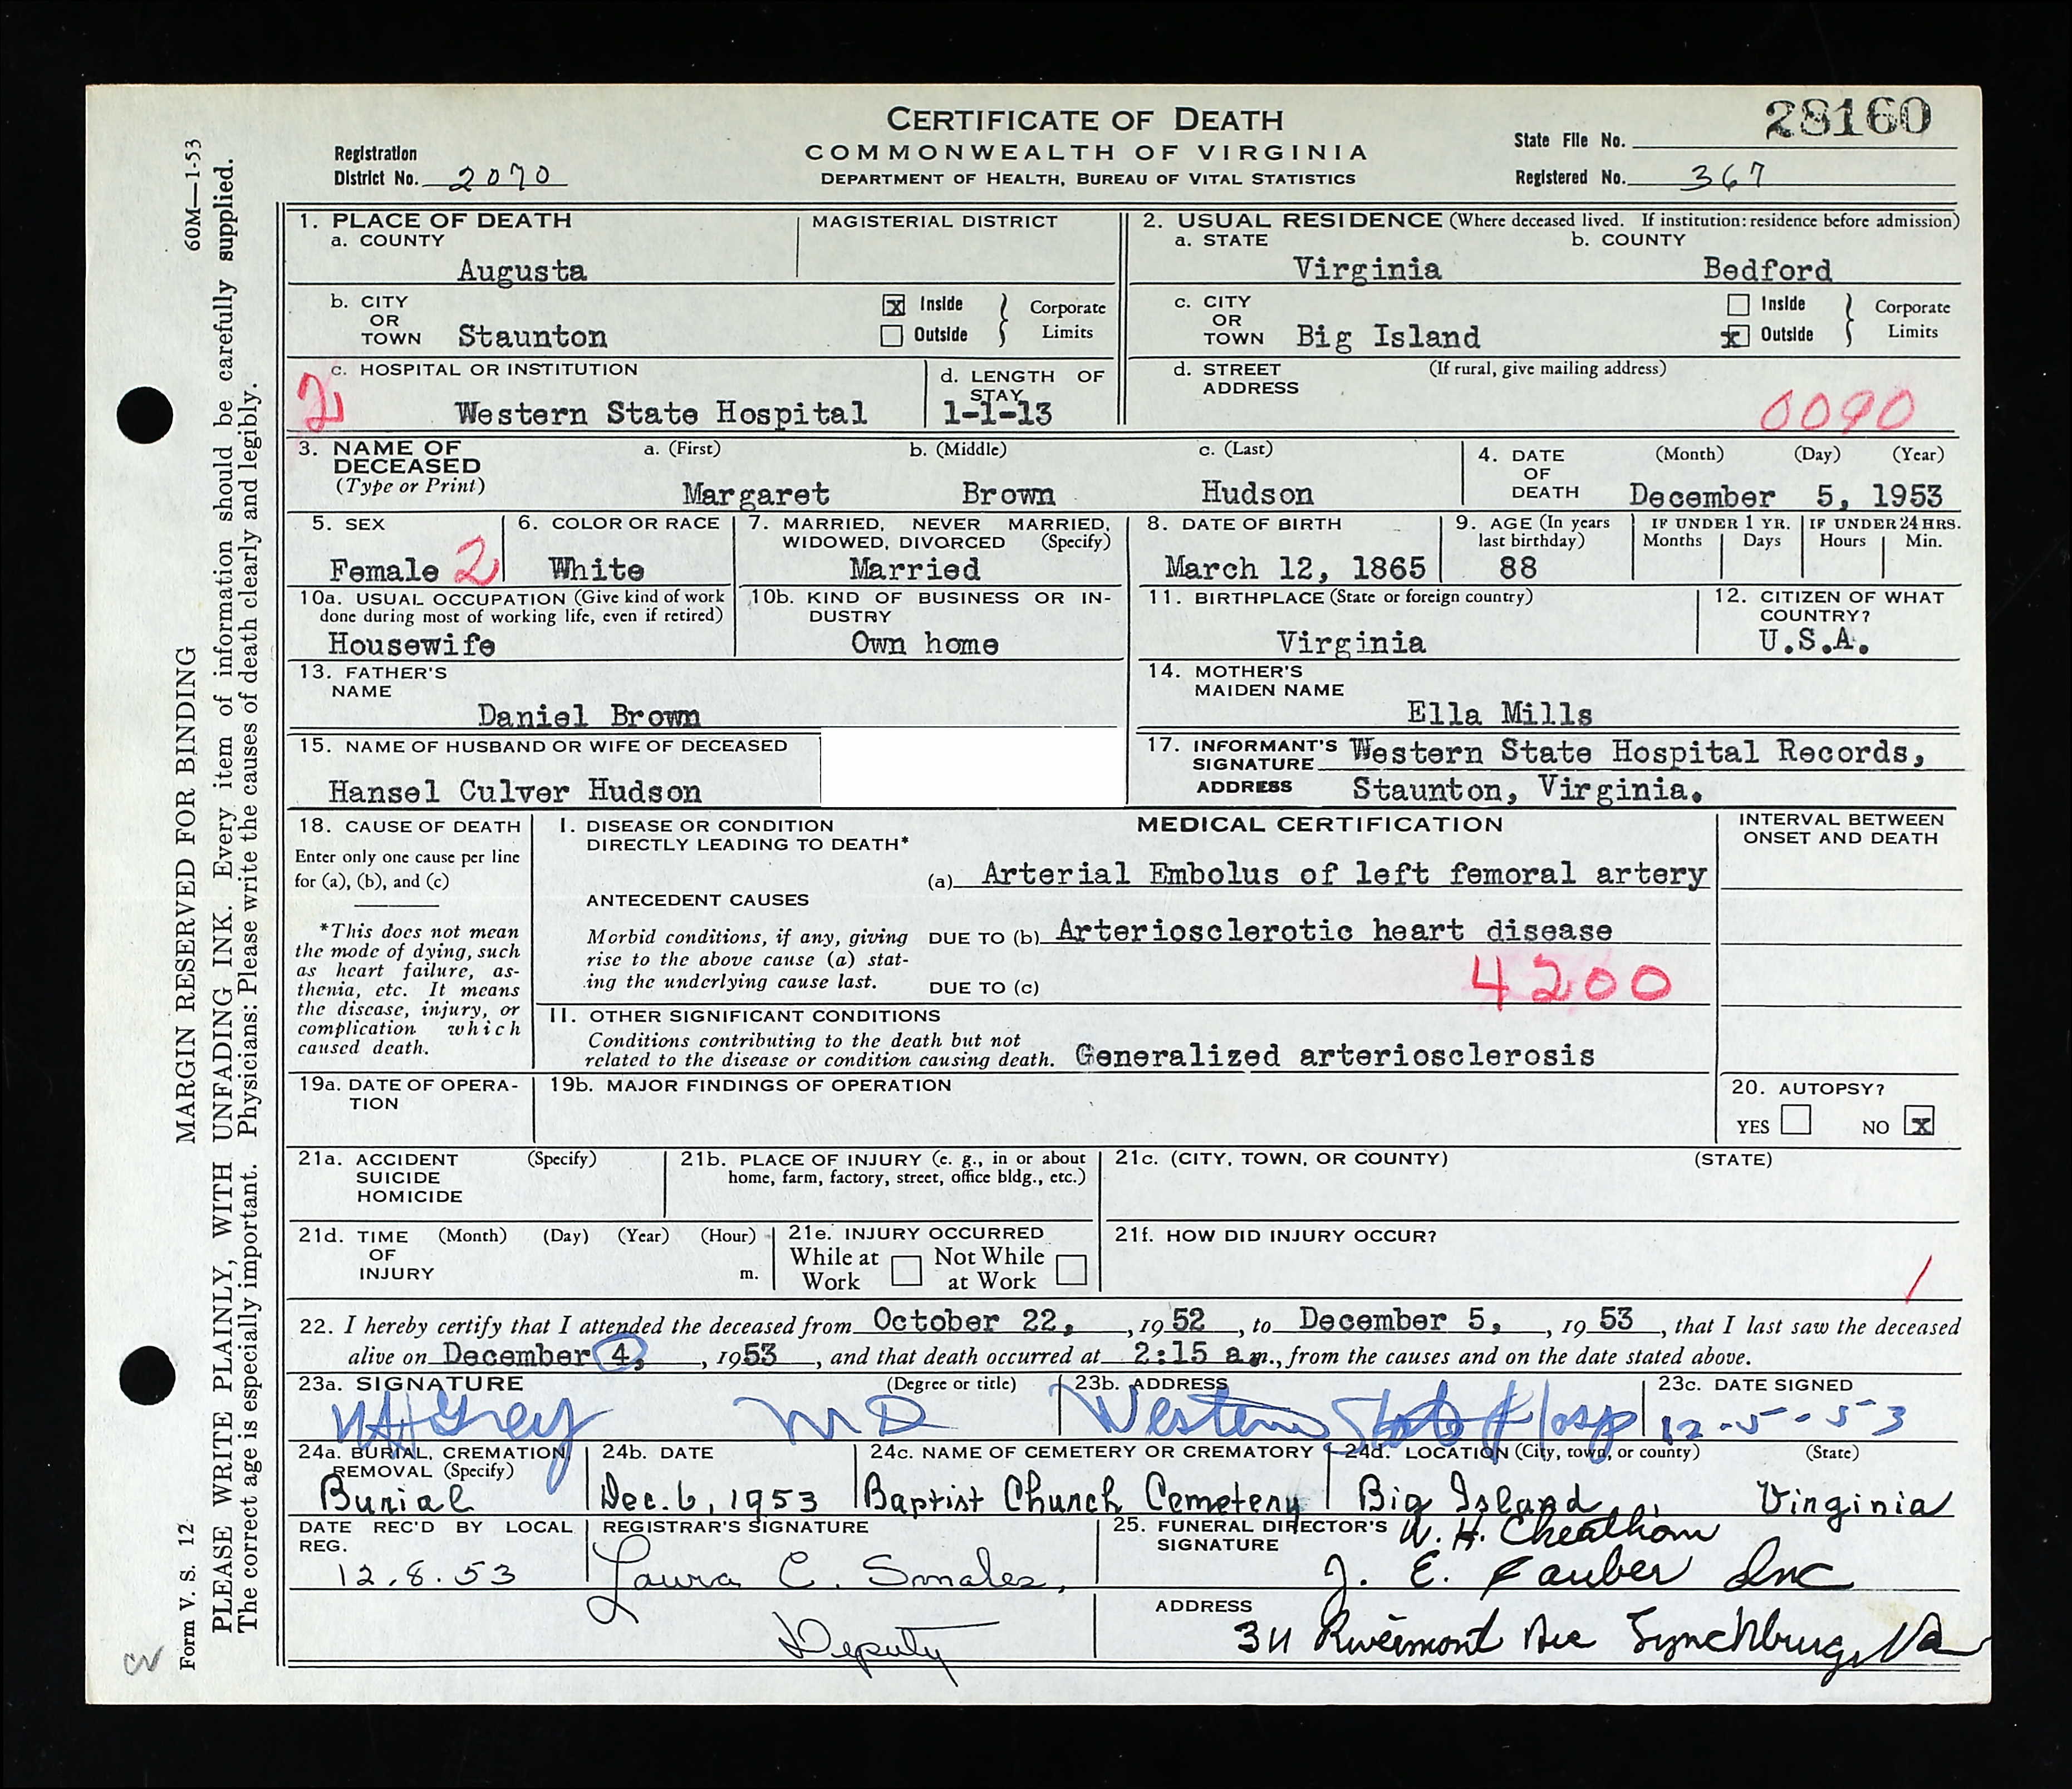 28160
CERTIFICATE OF DEATH
COMMONWEALTH OF VIRGINIA
DEPARTMENT OF HEALTH, BUREAU OF VITAL STATISTICS
Registration District No. 2070
State File No.
Registered No. 367
1. PLACE OF DEATH
a. COUNTY
Augusta
MAGISTERIAL DISTRICT
2. USUAL RESIDENCE (Where deceased lived. If institution: residence before admission)
a. STATE
Virginia
b. COUNTY
Bedford
b. CITY OR TOWN Staunton
x Inside
Outside
Corporate Limits
c. CITY OR TOWN Big Island
Inside
x Outside
Corporate Limits
2
c. HOSPITAL OR INSTITUTION
Western State Hospital
d. LENGTH OF STAY
1-1-13
d. STREET ADDRESS
(If rural, give mailing address)
0090
3. NAME OF DECEASED
(Type or Print)
a. (First)
Margaret
b. (Middle)
Brown
c. (Last)
Hudson
4. DATE OF DEATH
(Month) (Day) (Year)
December 5, 1953
5. SEX
Female 2
6. COLOR OR RACE
White
7. MARRIED, NEVER MARRIED, WIDOWED, DIVORCED (Specify)
Married
8. DATE OF BIRTH
March 12, 1865
9. AGE (In years last birthday)
88
IF UNDER 1 YR.
Months Days
IF UNDER 24 HRS.
Hours Min.
10a. USUAL OCCUPATION (Give kind of work done during most of working life, even if retired)
Housewife
10b. KIND OF BUSINESS OR IN-
DUSTRY
Own home
11. BIRTHPLACE (State or foreign country)
Virginia
12. CITIZEN OF WHAT COUNTRY?
U.S.A.
13. FATHER'S NAME
Daniel Brown
14. MOTHER'S MAIDEN NAME
Ella Mills
15. NAME OF HUSBAND OR WIFE OF DECEASED
Hansel Culver Hudson
17. INFORMANT'S SIGNATURE Western State Hospital Records,
ADDRESS Staunton, Virginia.
18. CAUSE OF DEATH
Enter only one cause per line for (a), (b), and (c)
*This does not mean
the mode of dying, such
as heart failure, as-
thenia, etc. It means
the disease, injury, or
complication which
caused death.
MEDICAL CERTIFICATION
INTERVAL BETWEEN ONSET AND DEATH
I. DISEASE OR CONDITION DIRECTLY LEADING TO DEATH*
(a) Arterial Embolus of left femoral artery
ANTECEDENT CAUSES
Morbid conditions, if any, giving
rise to the above cause (a) stat-
ing the underlying cause last.
DUE TO (b) Arteriosclerotic heart disease
DUE TO (c)
4200
II. OTHER SIGNIFICANT CONDITIONS
Conditions contributing to the death but not
related to the disease or condition causing death. Generalized arteriosclerosis
19a. DATE OF OPERA-
TION
19b. MAJOR FINDINGS OF OPERATION
20. AUTOPSY?
YES NO x
21a. ACCIDENT SUICIDE HOMICIDE (Specify)
21b. PLACE OF INJURY (e. g., in or about home, farm, factory, street, office bldg., etc.)
21c. (CITY, TOWN, OR COUNTY) (STATE)
21d. TIME OF INJURY (Month) (Day) (Year) (Hour)
m.
21e. INJURY OCCURRED
While at Work
Not While at Work
21f. HOW DID INJURY OCCUR?
22. I hereby certify that I attended the deceased from October 22, , 1952 , to December 5, , 1953 , that I last saw the deceased
alive on December 4, , 1953 , and that death occurred at 2:15 a m., from the causes and on the date stated above.
23a. SIGNATURE (Degree or title)
M D
23b. ADDRESS
Western State Hosp
23c. DATE SIGNED
12-5-53
24a. BURIAL, CREMATION, REMOVAL (Specify)
Burial
24b. DATE
Dec. 6, 1953
24c. NAME OF CEMETERY OR CREMATORY
Baptist Church Cemetery
24d. LOCATION (City, town, or county) (State)
Big Island, Virginia
DATE REC'D BY LOCAL REG.
12.8.53
REGISTRAR'S SIGNATURE
Laura C. Smales,
Deputy
25. FUNERAL DIRECTOR'S SIGNATURE
W. H. Cheatham
J. E. Fauber Inc
ADDRESS
311 Rivermont Ave Lynchburg, Va
60M—1-53
MARGIN RESERVED FOR BINDING
PLEASE WRITE PLAINLY, WITH UNFADING INK. Every item of information should be carefully supplied.
The correct age is especially important. Physicians: Please write the causes of death clearly and legibly.
Form V. S. 12